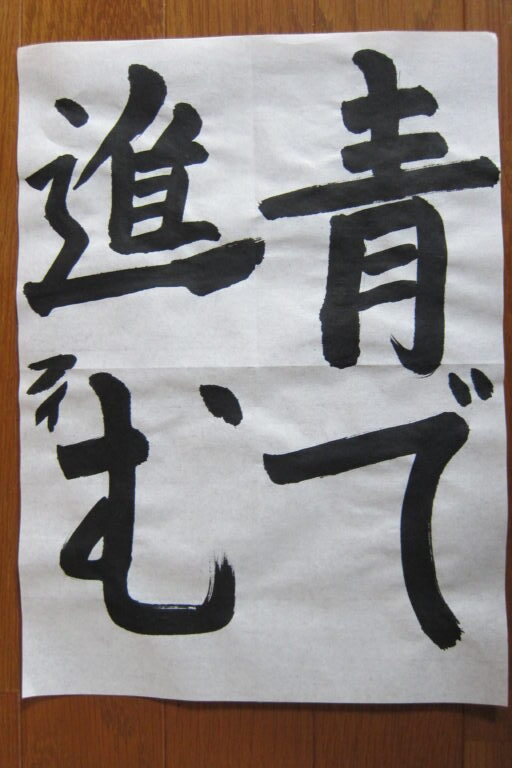 青で
進む